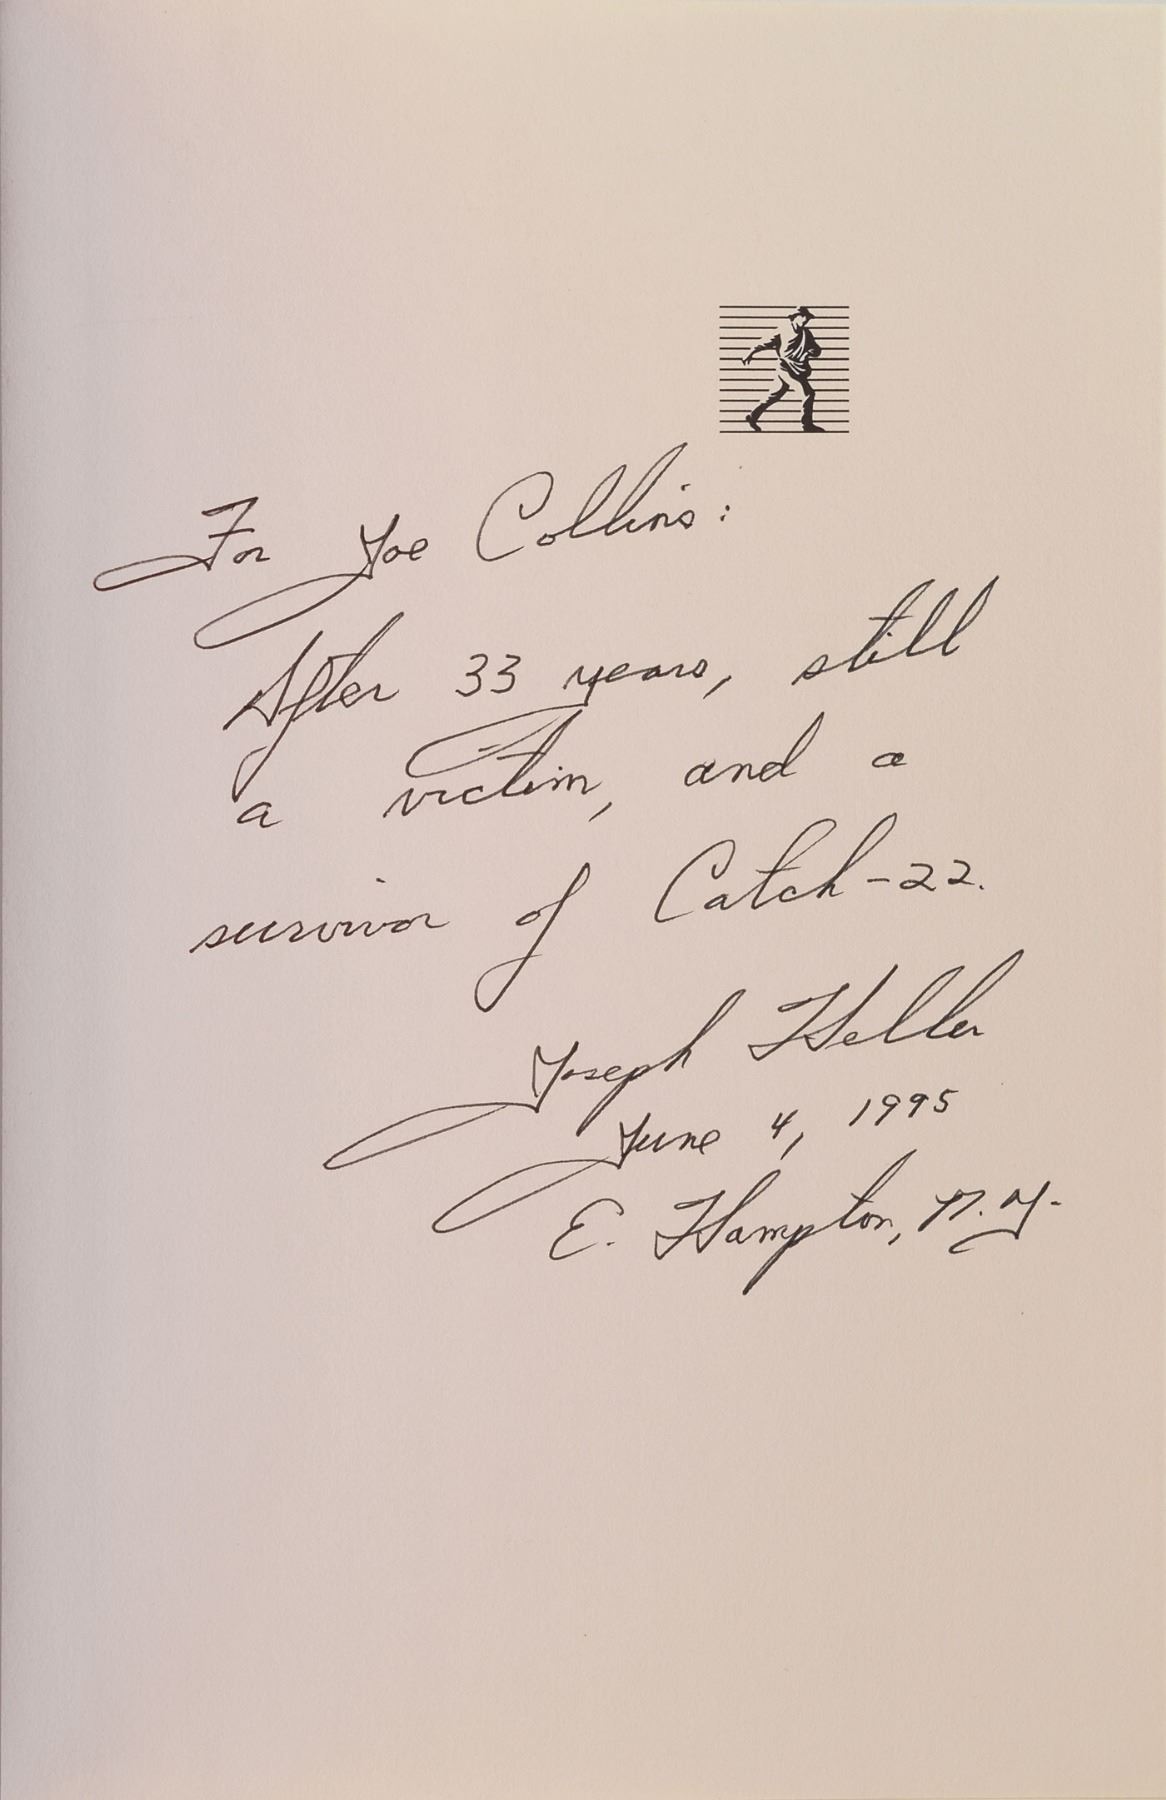 For Joe Collins:
After 33 years, still
a victim, and a
survivor of Catch-22.
Joseph Heller
June 4, 1995
E. Hampton, N.Y.